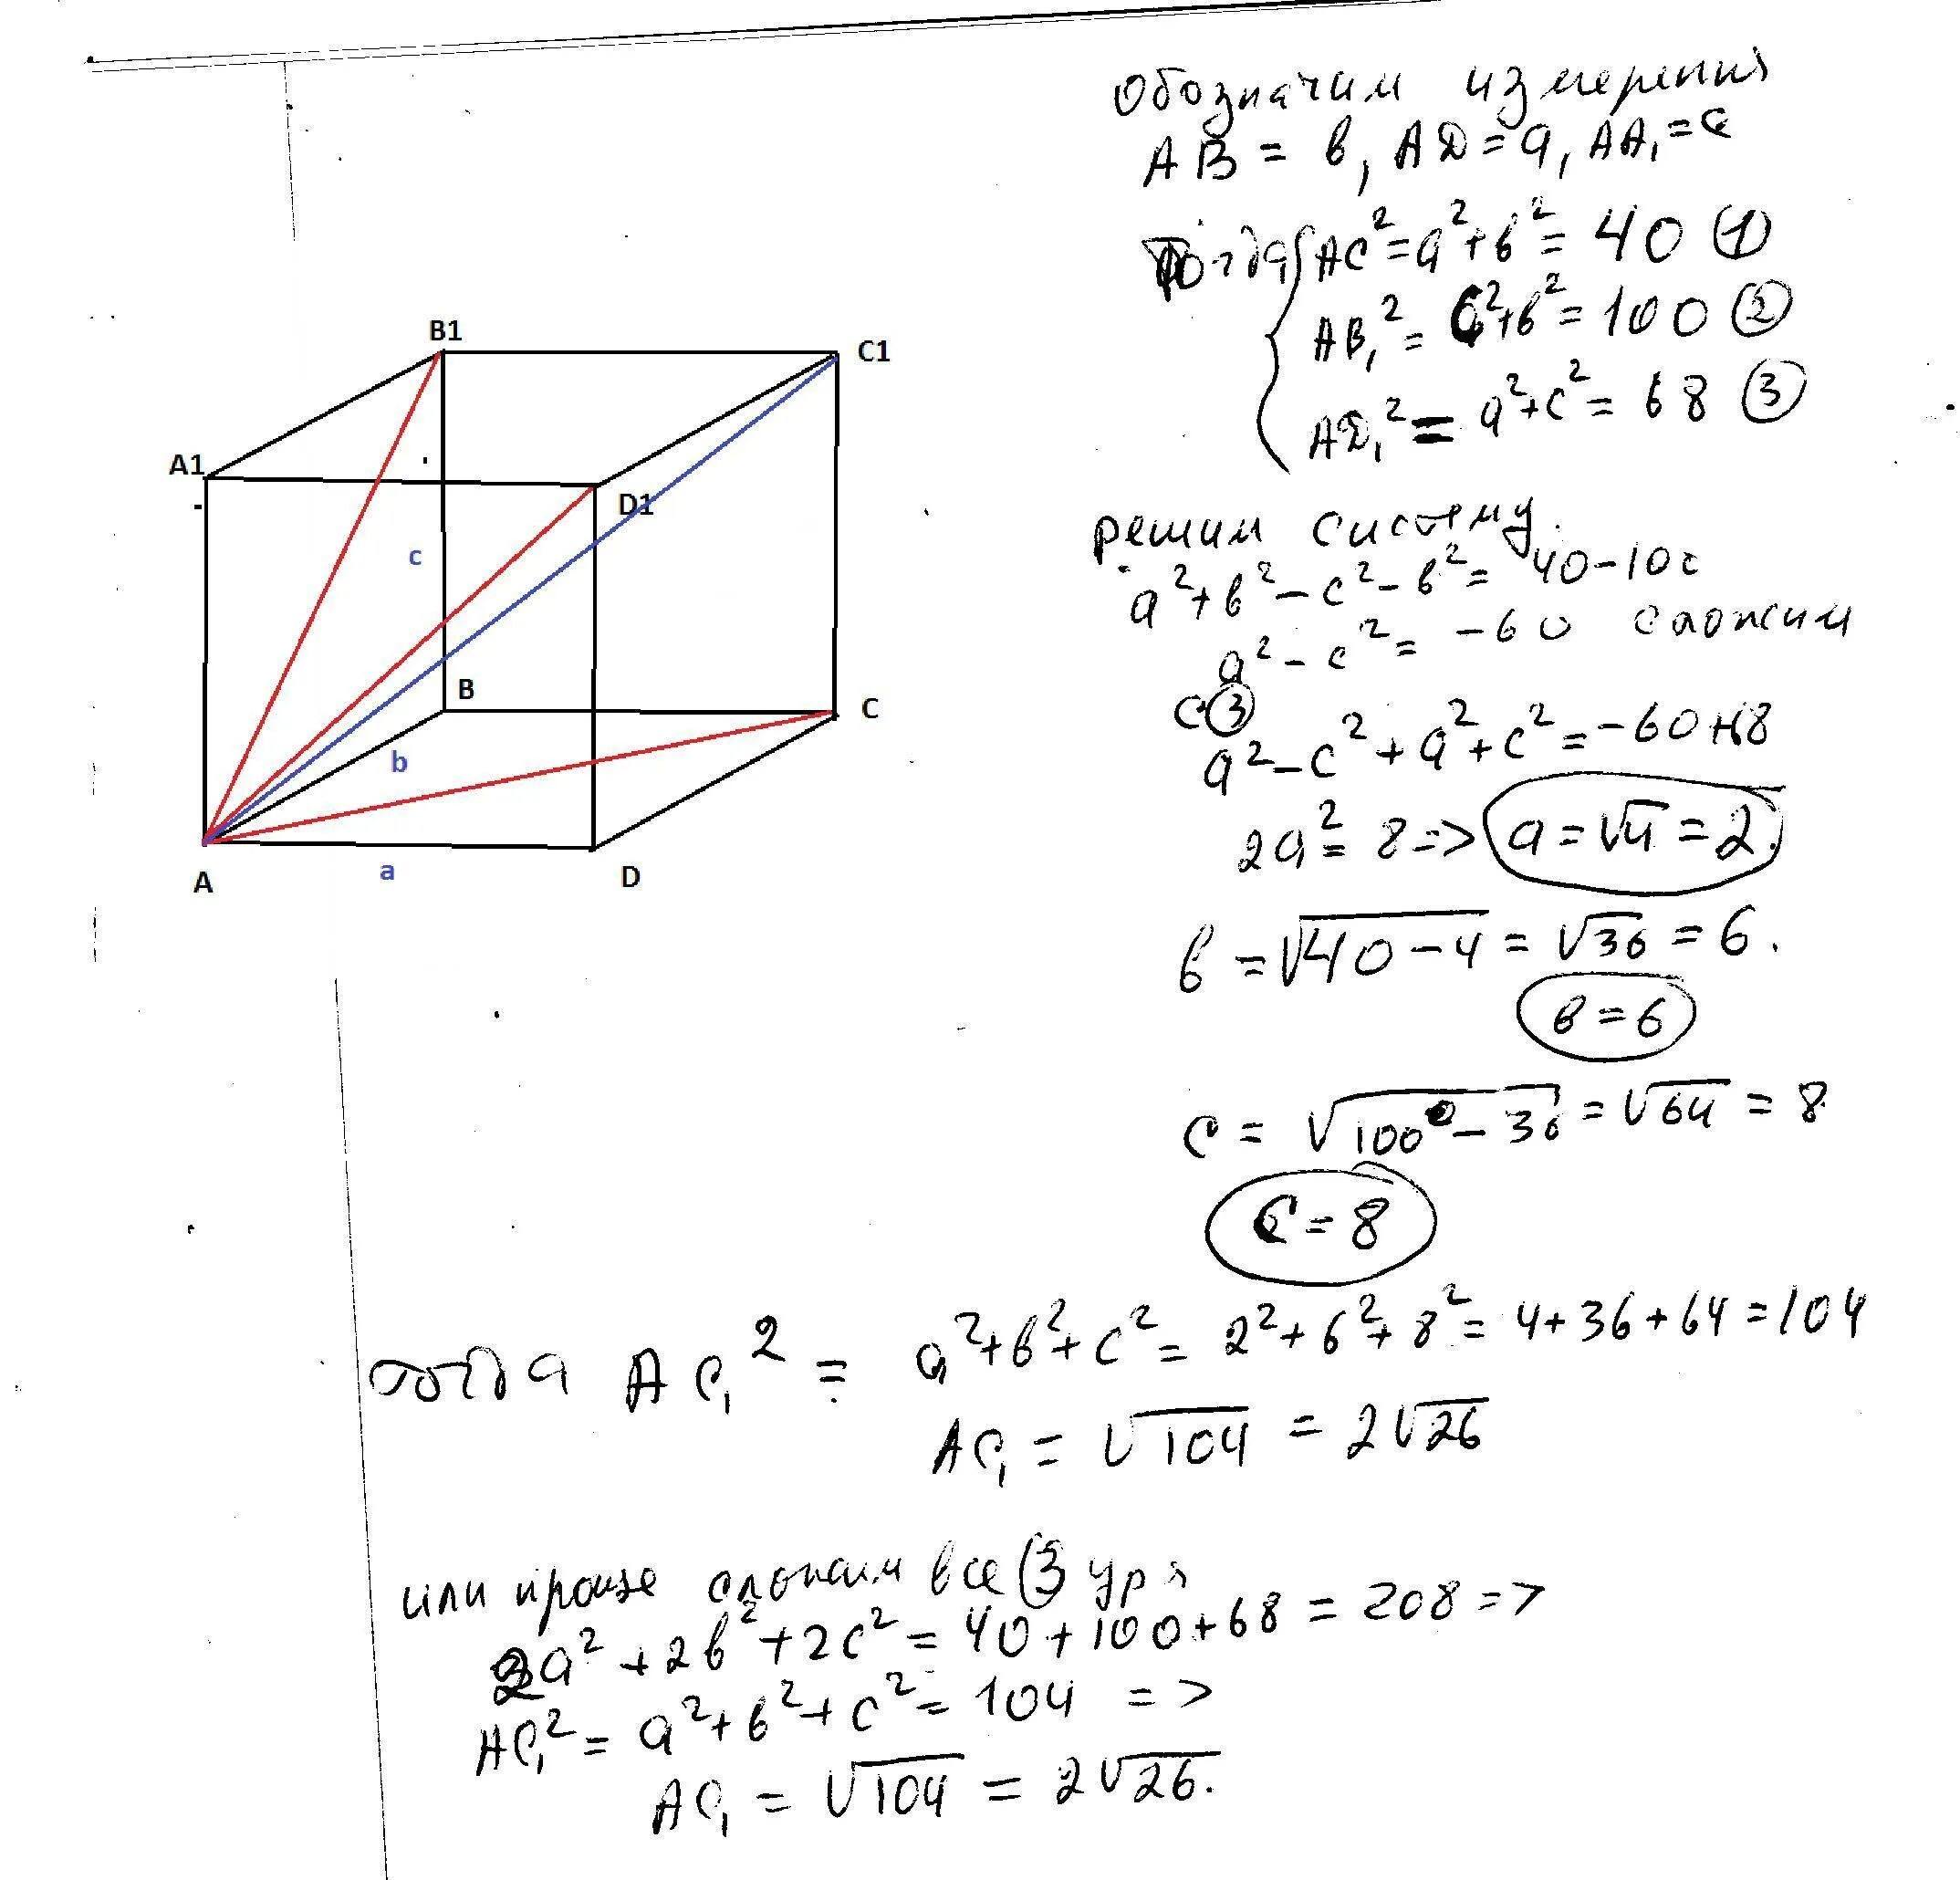 B1
C1
A1
D1
c
B
C
b
A
a
D
Обозначим измерения
AB = в, AD = a, AA₁ = c
Тогда { AC² = a² + в² = 40 ①
AB₁² = c² + в² = 100 ②
AD₁² = a² + c² = 68 ③
решим систему.
a² + в² − c² − в² = 40 − 100
a² − c² = −60 сложим
с ③
a² − c² + a² + c² = −60 + 68
2a² = 8 => a = √4 = 2.
в = √40 − 4 = √36 = 6.
в = 6
c = √100 − 36 = √64 = 8
c = 8
тогда AC₁² = a² + в² + c² = 2² + 6² + 8² = 4 + 36 + 64 = 104
AC₁ = √104 = 2√26
или проще сложим все (3 ур я
2a² + 2в² + 2c² = 40 + 100 + 68 = 208 =>
AC₁² = a² + в² + c² = 104 =>
AC₁ = √104 = 2√26.